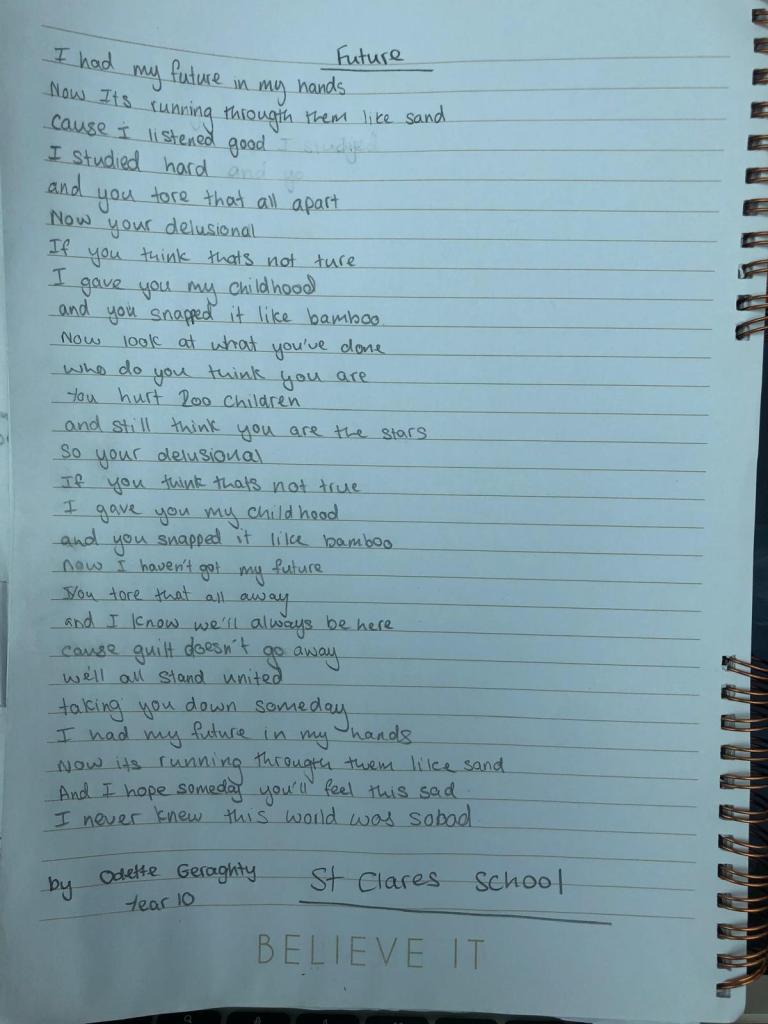 Future
I had my future in my hands
Now Its running througth them like sand
cause i listened good
I studied hard
and you tore that all apart
Now your delusional
If you think thats not ture
I gave you my childhood
and you snapped it like bamboo
Now look at what you've done
who do you think you are
You hurt 200 children
and still think you are the stars
So your delusional
If you think thats not true
I gave you my childhood
and you snapped it like bamboo
now I haven't got my future
You tore that all away
and I know we'll always be here
cause guilt doesn't go away
we'll all stand united
taking you down someday
I had my future in my hands
Now its running througth them like sand
And I hope someday you'll feel this sad
I never knew this world was sobad
by Odette Geraghty
Year 10
St Clares School
BELIEVE IT